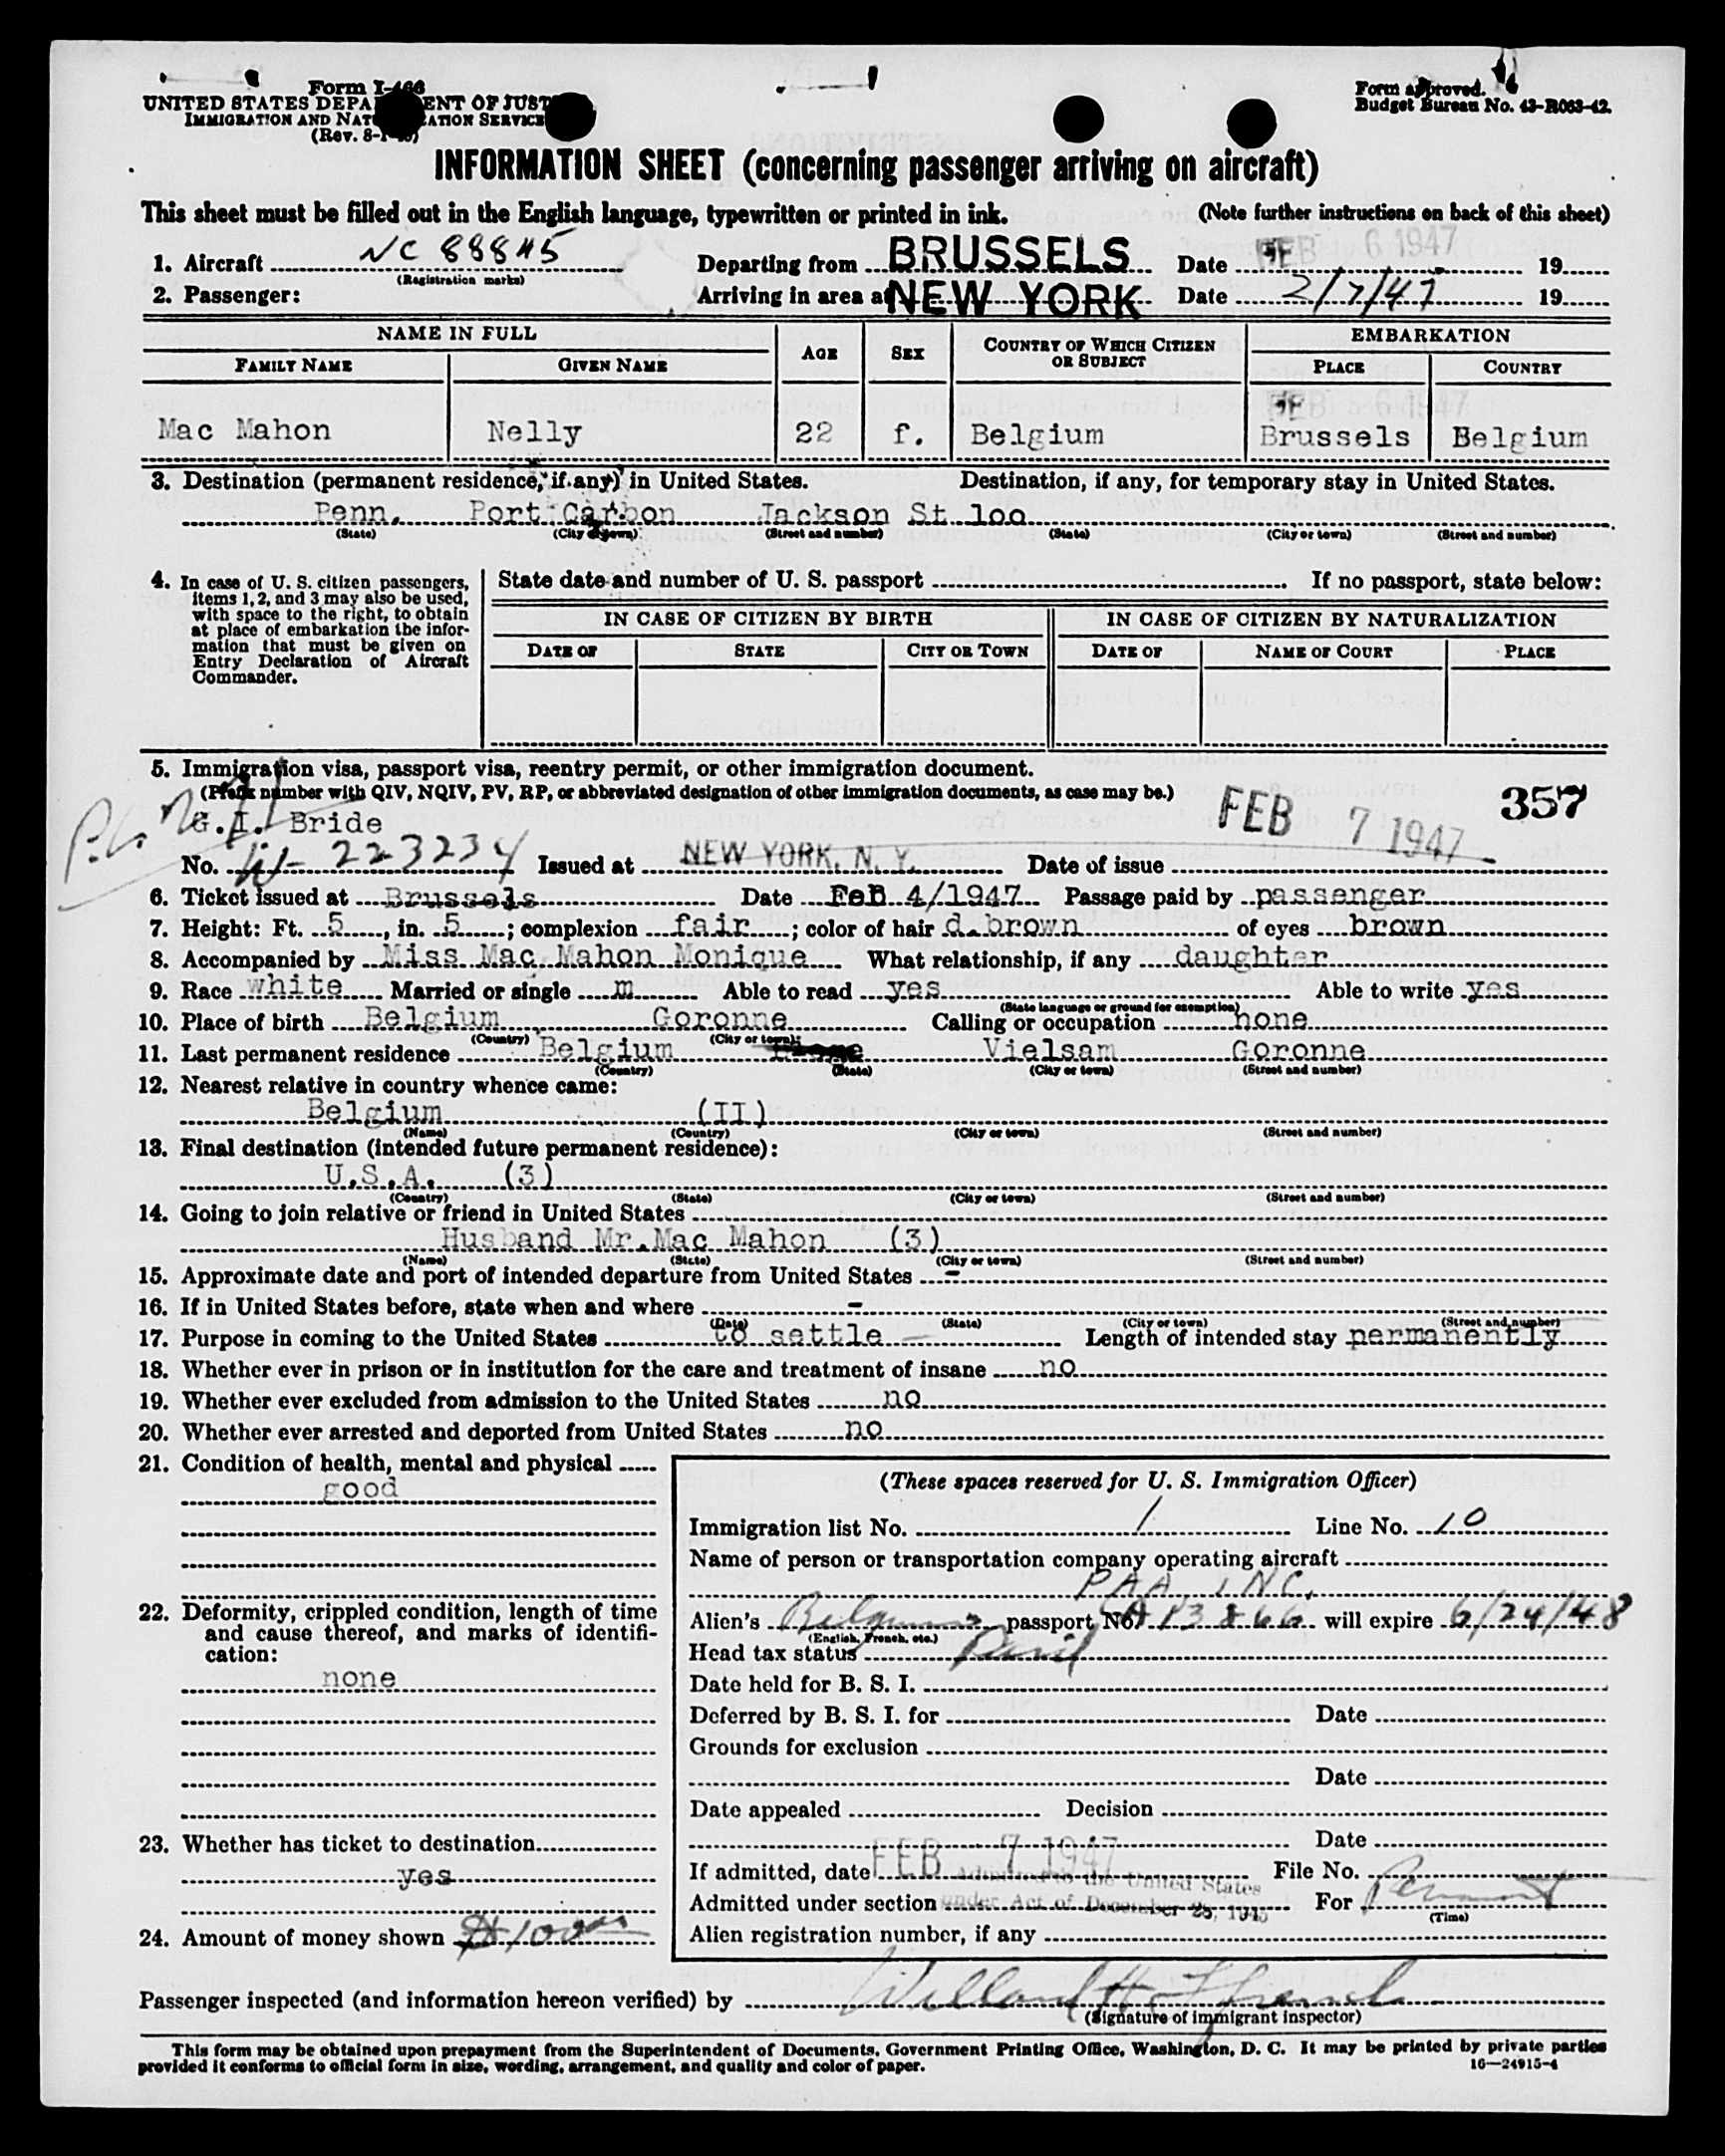 Form I-466
UNITED STATES DEPA ENT OF JUST
IMMIGRATION AND NAT ATION SERVICE
(Rev. 8-1- )
Form approved.
Budget Bureau No. 43-R063-42.
INFORMATION SHEET (concerning passenger arriving on aircraft)
This sheet must be filled out in the English language, typewritten or printed in ink. (Note further instructions on back of this sheet)
1. Aircraft NC 88845 Departing from BRUSSELS Date FEB 6 1947 19
(Registration marks)
2. Passenger: Arriving in area at NEW YORK Date 2/7/47 19
NAME IN FULL AGE SEX COUNTRY OF WHICH CITIZEN OR SUBJECT EMBARKATION
FAMILY NAME GIVEN NAME PLACE COUNTRY
FEB 6 1947
Mac Mahon Nelly 22 f. Belgium Brussels Belgium
3. Destination (permanent residence, if any) in United States. Destination, if any, for temporary stay in United States.
Penn. Port Carbon Jackson St loo
(State) (City or town) (Street and number) (State) (City or town) (Street and number)
4. In case of U. S. citizen passengers, items 1, 2, and 3 may also be used, with space to the right, to obtain at place of embarkation the information that must be given on Entry Declaration of Aircraft Commander.
State date and number of U. S. passport If no passport, state below:
IN CASE OF CITIZEN BY BIRTH IN CASE OF CITIZEN BY NATURALIZATION
DATE OF STATE CITY OR TOWN DATE OF NAME OF COURT PLACE
5. Immigration visa, passport visa, reentry permit, or other immigration document.
(Prefix number with QIV, NQIV, PV, RP, or abbreviated designation of other immigration documents, as case may be.)
G.I. Bride FEB 7 1947 357
No. W-223234 Issued at NEW YORK, N. Y. Date of issue
6. Ticket issued at Brussels Date FeB 4/1947 Passage paid by passenger
7. Height: Ft. 5, in. 5; complexion fair; color of hair d.brown of eyes brown
8. Accompanied by Miss Mac Mahon Monique What relationship, if any daughter
9. Race white Married or single m Able to read yes Able to write yes
(State language or ground for exemption)
10. Place of birth Belgium Goronne Calling or occupation none
(Country) (City or town)
11. Last permanent residence Belgium Vielsam Goronne
(Country) (State) (City or town) (Street and number)
12. Nearest relative in country whence came:
Belgium (II)
(Name) (Country) (City or town) (Street and number)
13. Final destination (intended future permanent residence):
U.S.A. (3)
(Country) (State) (City or town) (Street and number)
14. Going to join relative or friend in United States
Husband Mr.Mac Mahon (3)
(Name) (State) (City or town) (Street and number)
15. Approximate date and port of intended departure from United States -
16. If in United States before, state when and where -
(Date) (State) (City or town) (Street and number)
17. Purpose in coming to the United States to settle Length of intended stay permanently
18. Whether ever in prison or in institution for the care and treatment of insane no
19. Whether ever excluded from admission to the United States no
20. Whether ever arrested and deported from United States no
21. Condition of health, mental and physical
good
22. Deformity, crippled condition, length of time and cause thereof, and marks of identification:
none
23. Whether has ticket to destination
yes
24. Amount of money shown $100
(These spaces reserved for U. S. Immigration Officer)
Immigration list No. 1 Line No. 10
Name of person or transportation company operating aircraft
PAA, INC.
Alien's Belgium passport No. 13866 will expire 6/24/48
(English, French, etc.)
Head tax status Paid
Date held for B. S. I.
Deferred by B. S. I. for Date
Grounds for exclusion
Date
Date appealed Decision
Date
If admitted, date FEB 7 1947 File No.
Admitted to the United States
Admitted under section under Act of December 28, 1945 For Permanent
(Time)
Alien registration number, if any
Passenger inspected (and information hereon verified) by Willard H.
(Signature of immigrant inspector)
This form may be obtained upon prepayment from the Superintendent of Documents, Government Printing Office, Washington, D. C. It may be printed by private parties
provided it conforms to official form in size, wording, arrangement, and quality and color of paper. 16—24915-4